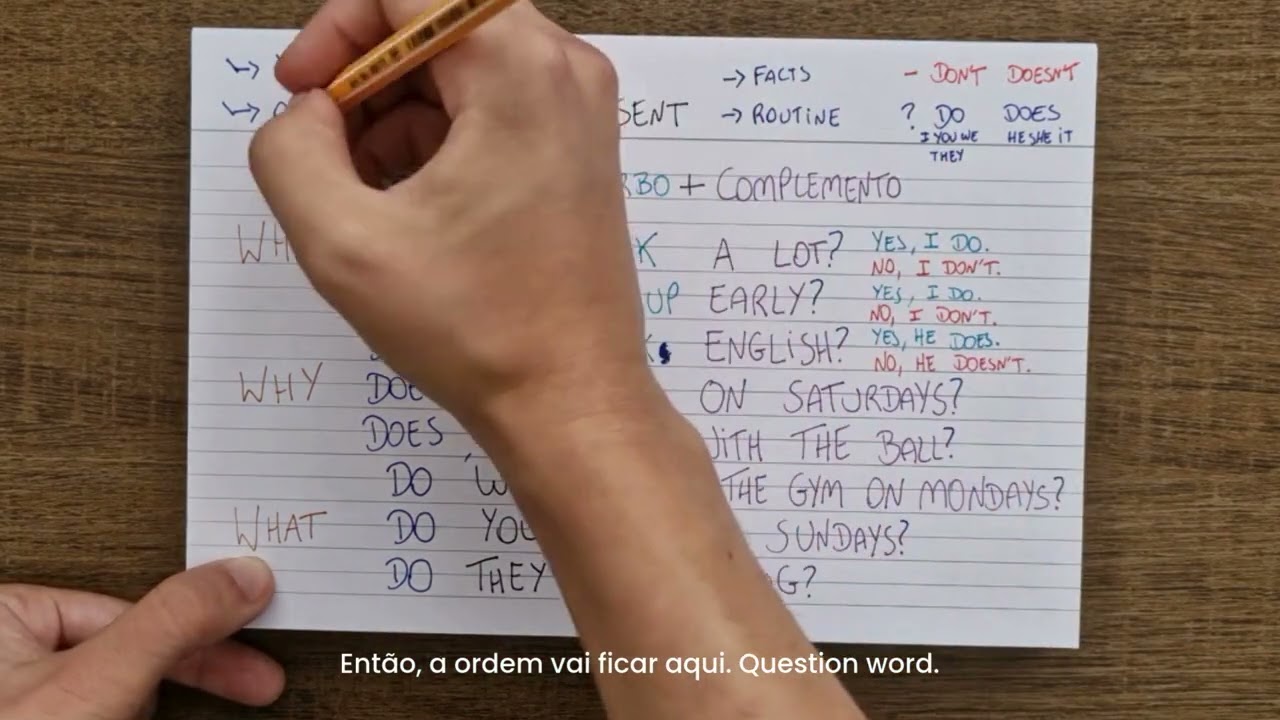 → FACTS - DON'T DOESN'T
→ ROUTINE ? DO DOES
I YOU WE HE SHE IT
THEY
+ COMPLEMENTO
A LOT? YES, I DO.
NO, I DON'T.
UP EARLY? YES, I DO.
NO, I DON'T.
ENGLISH? YES, HE DOES.
NO, HE DOESN'T.
WHY ON SATURDAYS?
DOES THE BALL?
DO THE GYM ON MONDAYS?
WHAT DO YOU SUNDAYS?
DO THEY
Então, a ordem vai ficar aqui. Question word.